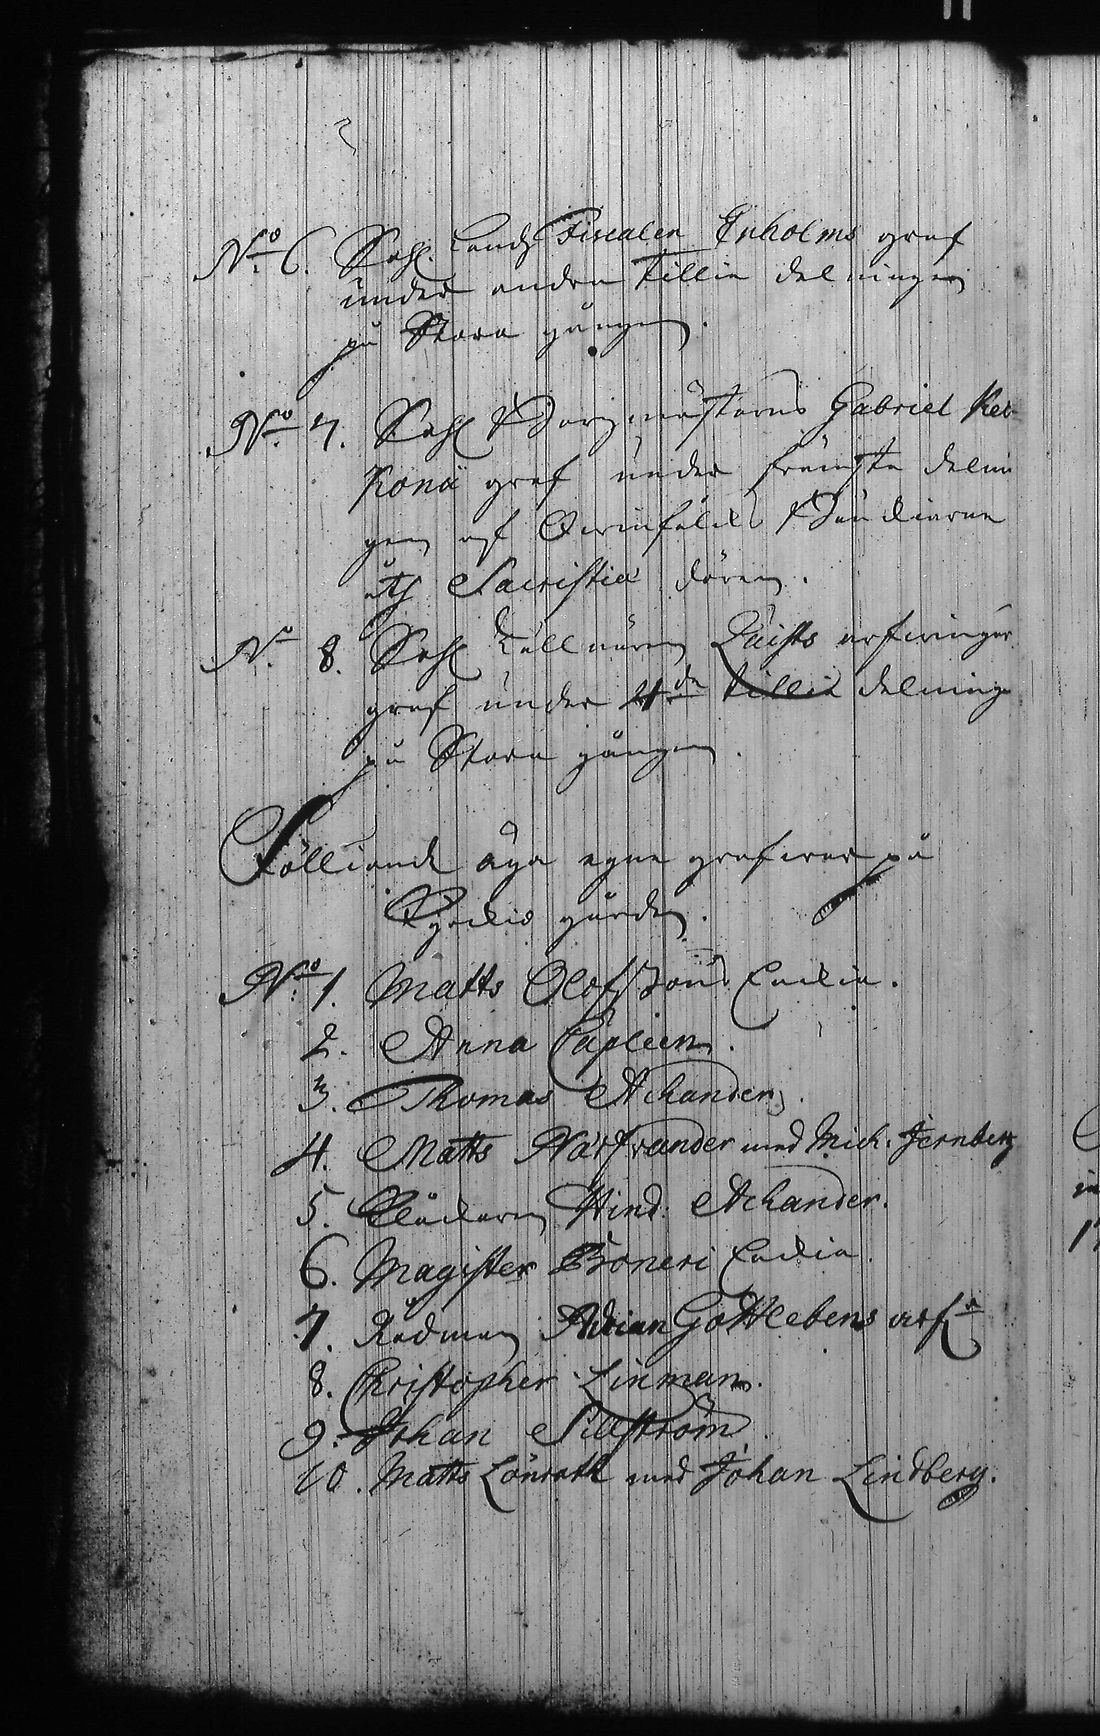 No 6. Sahl. Landz Fiscalen Enholms graf
under andra tillia delningen
på Stora gången.
No 7. Sahl Borgmästarens Gabriel Ker-
konä graf under främsta delnin
gen af bänckiarne
åth Sacristie dören.
No 8. Sahl Quists arfwingar
graf under 4de tillie delning
på Stora gången.
Fölliande äga egne grafwar på
Kyrckio gården.
No 1. Matts Olofssons Enckia.
2. Anna Capleen.
3. Thomas Achander.
4. Matts Narfvander med Mich. Jernberg
5. Klåckaren Hind. Achander.
6. Magister Boneri Enckia
7. Rådman Adrian Gottlebens arf
8. Christopher Linman.
9. Johan Sillström
10. Matts Lönroth med Johan Lindberg.